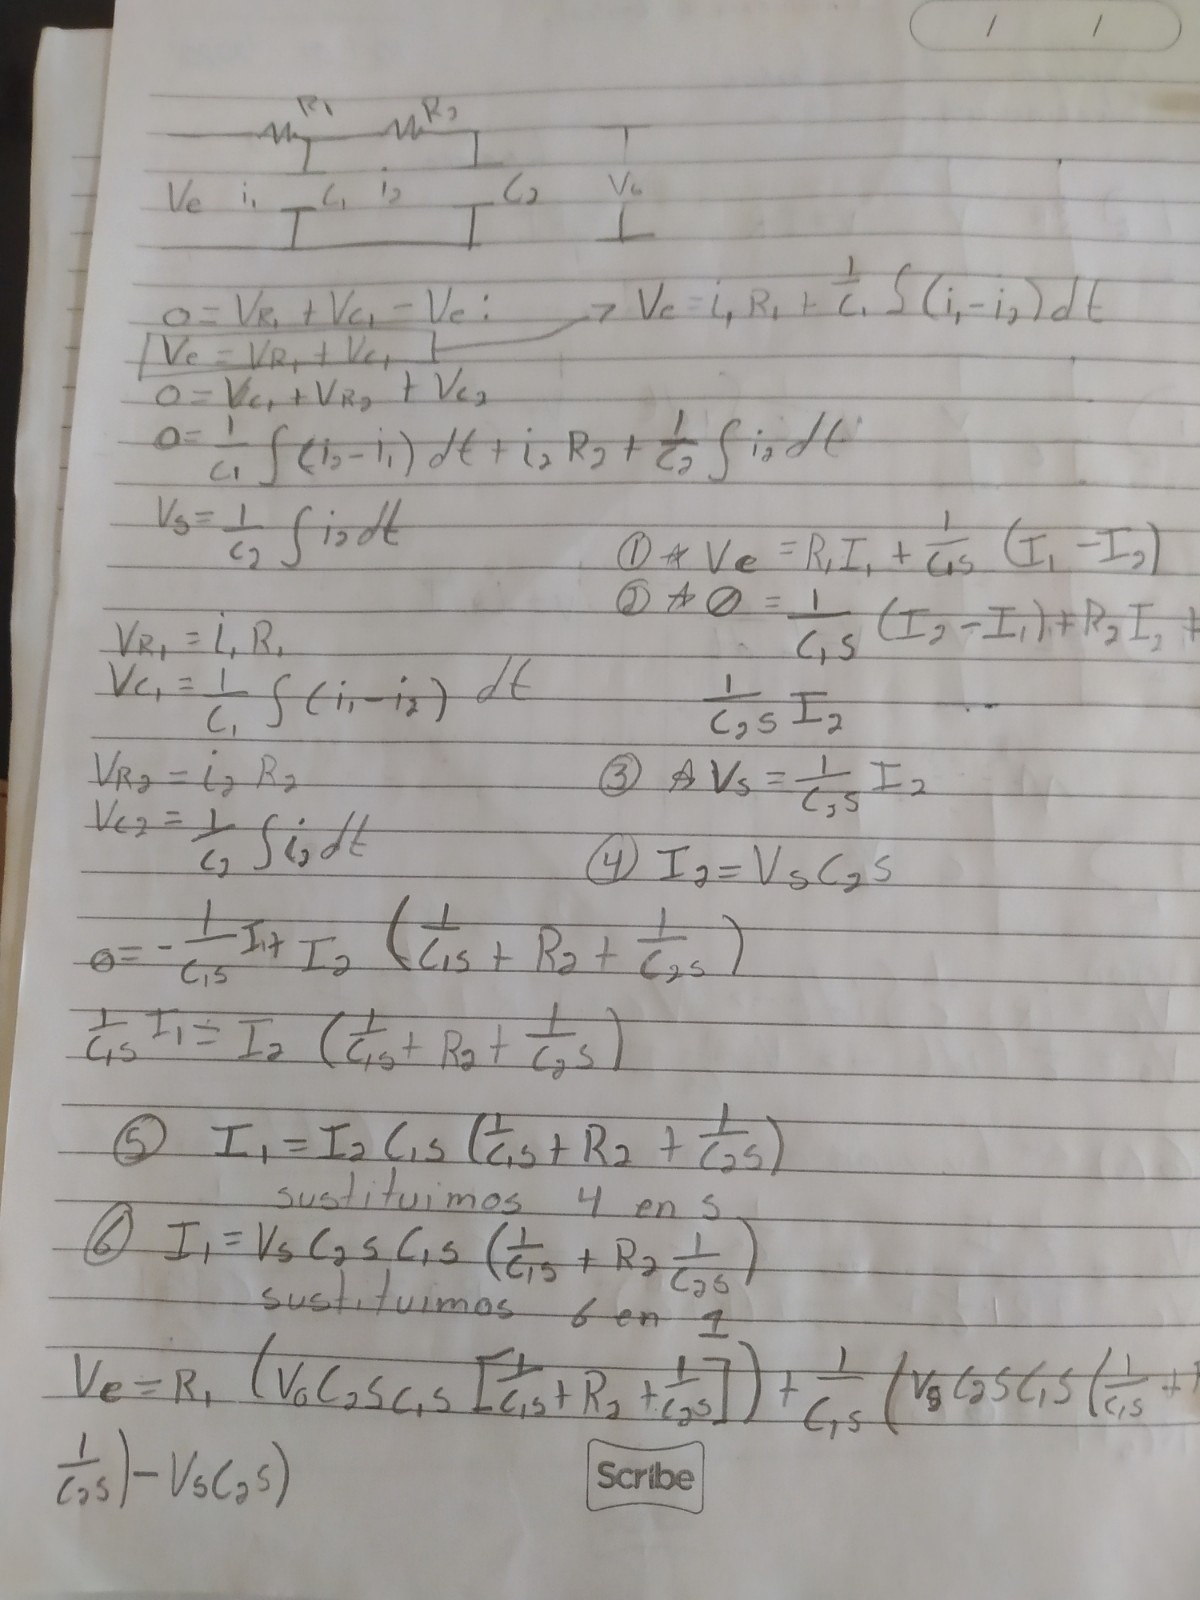 / /
R₁ R₂
Ve i₁ C₁ i₂ C₂ Vs
0 = VR₁ + VC₁ - Ve : → Ve = i₁ R₁ + 1/C₁ ∫(i₁-i₂) dt
Ve = VR₁ + VC₁
0 = VC₁ + VR₂ + VC₂
0 = 1/C₁ ∫(i₂-i₁) dt + i₂ R₂ + 1/C₂ ∫ i₂ dt
Vs = 1/C₂ ∫ i₂ dt
① * Ve = R₁I₁ + 1/C₁s (I₁ - I₂)
② * 0 = 1/C₁s (I₂ - I₁) + R₂ I₂ +
1/C₂s I₂
VR₁ = i₁ R₁
VC₁ = 1/C₁ ∫(i₁-i₂) dt
VR₂ = i₂ R₂
③ * Vs = 1/C₂s I₂
VC₂ = 1/C₂ ∫ i₂ dt
④ I₂ = Vs C₂s
0 = - 1/C₁s I₁ + I₂ (1/C₁s + R₂ + 1/C₂s)
1/C₁s I₁ = I₂ (1/C₁s + R₂ + 1/C₂s)
⑤ I₁ = I₂ C₁s (1/C₁s + R₂ + 1/C₂s)
sustituimos 4 en 5
⑥ I₁ = Vs C₂s C₁s (1/C₁s + R₂ 1/C₂s)
sustituimos 6 en 1
Ve = R₁ (Vs C₂s C₁s [1/C₁s + R₂ + 1/C₂s]) + 1/C₁s (Vs C₂s C₁s (1/C₁s +
1/C₂s) - Vs C₂s)
Scribe